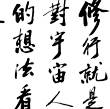 修行就是
對宇宙人
的想法看